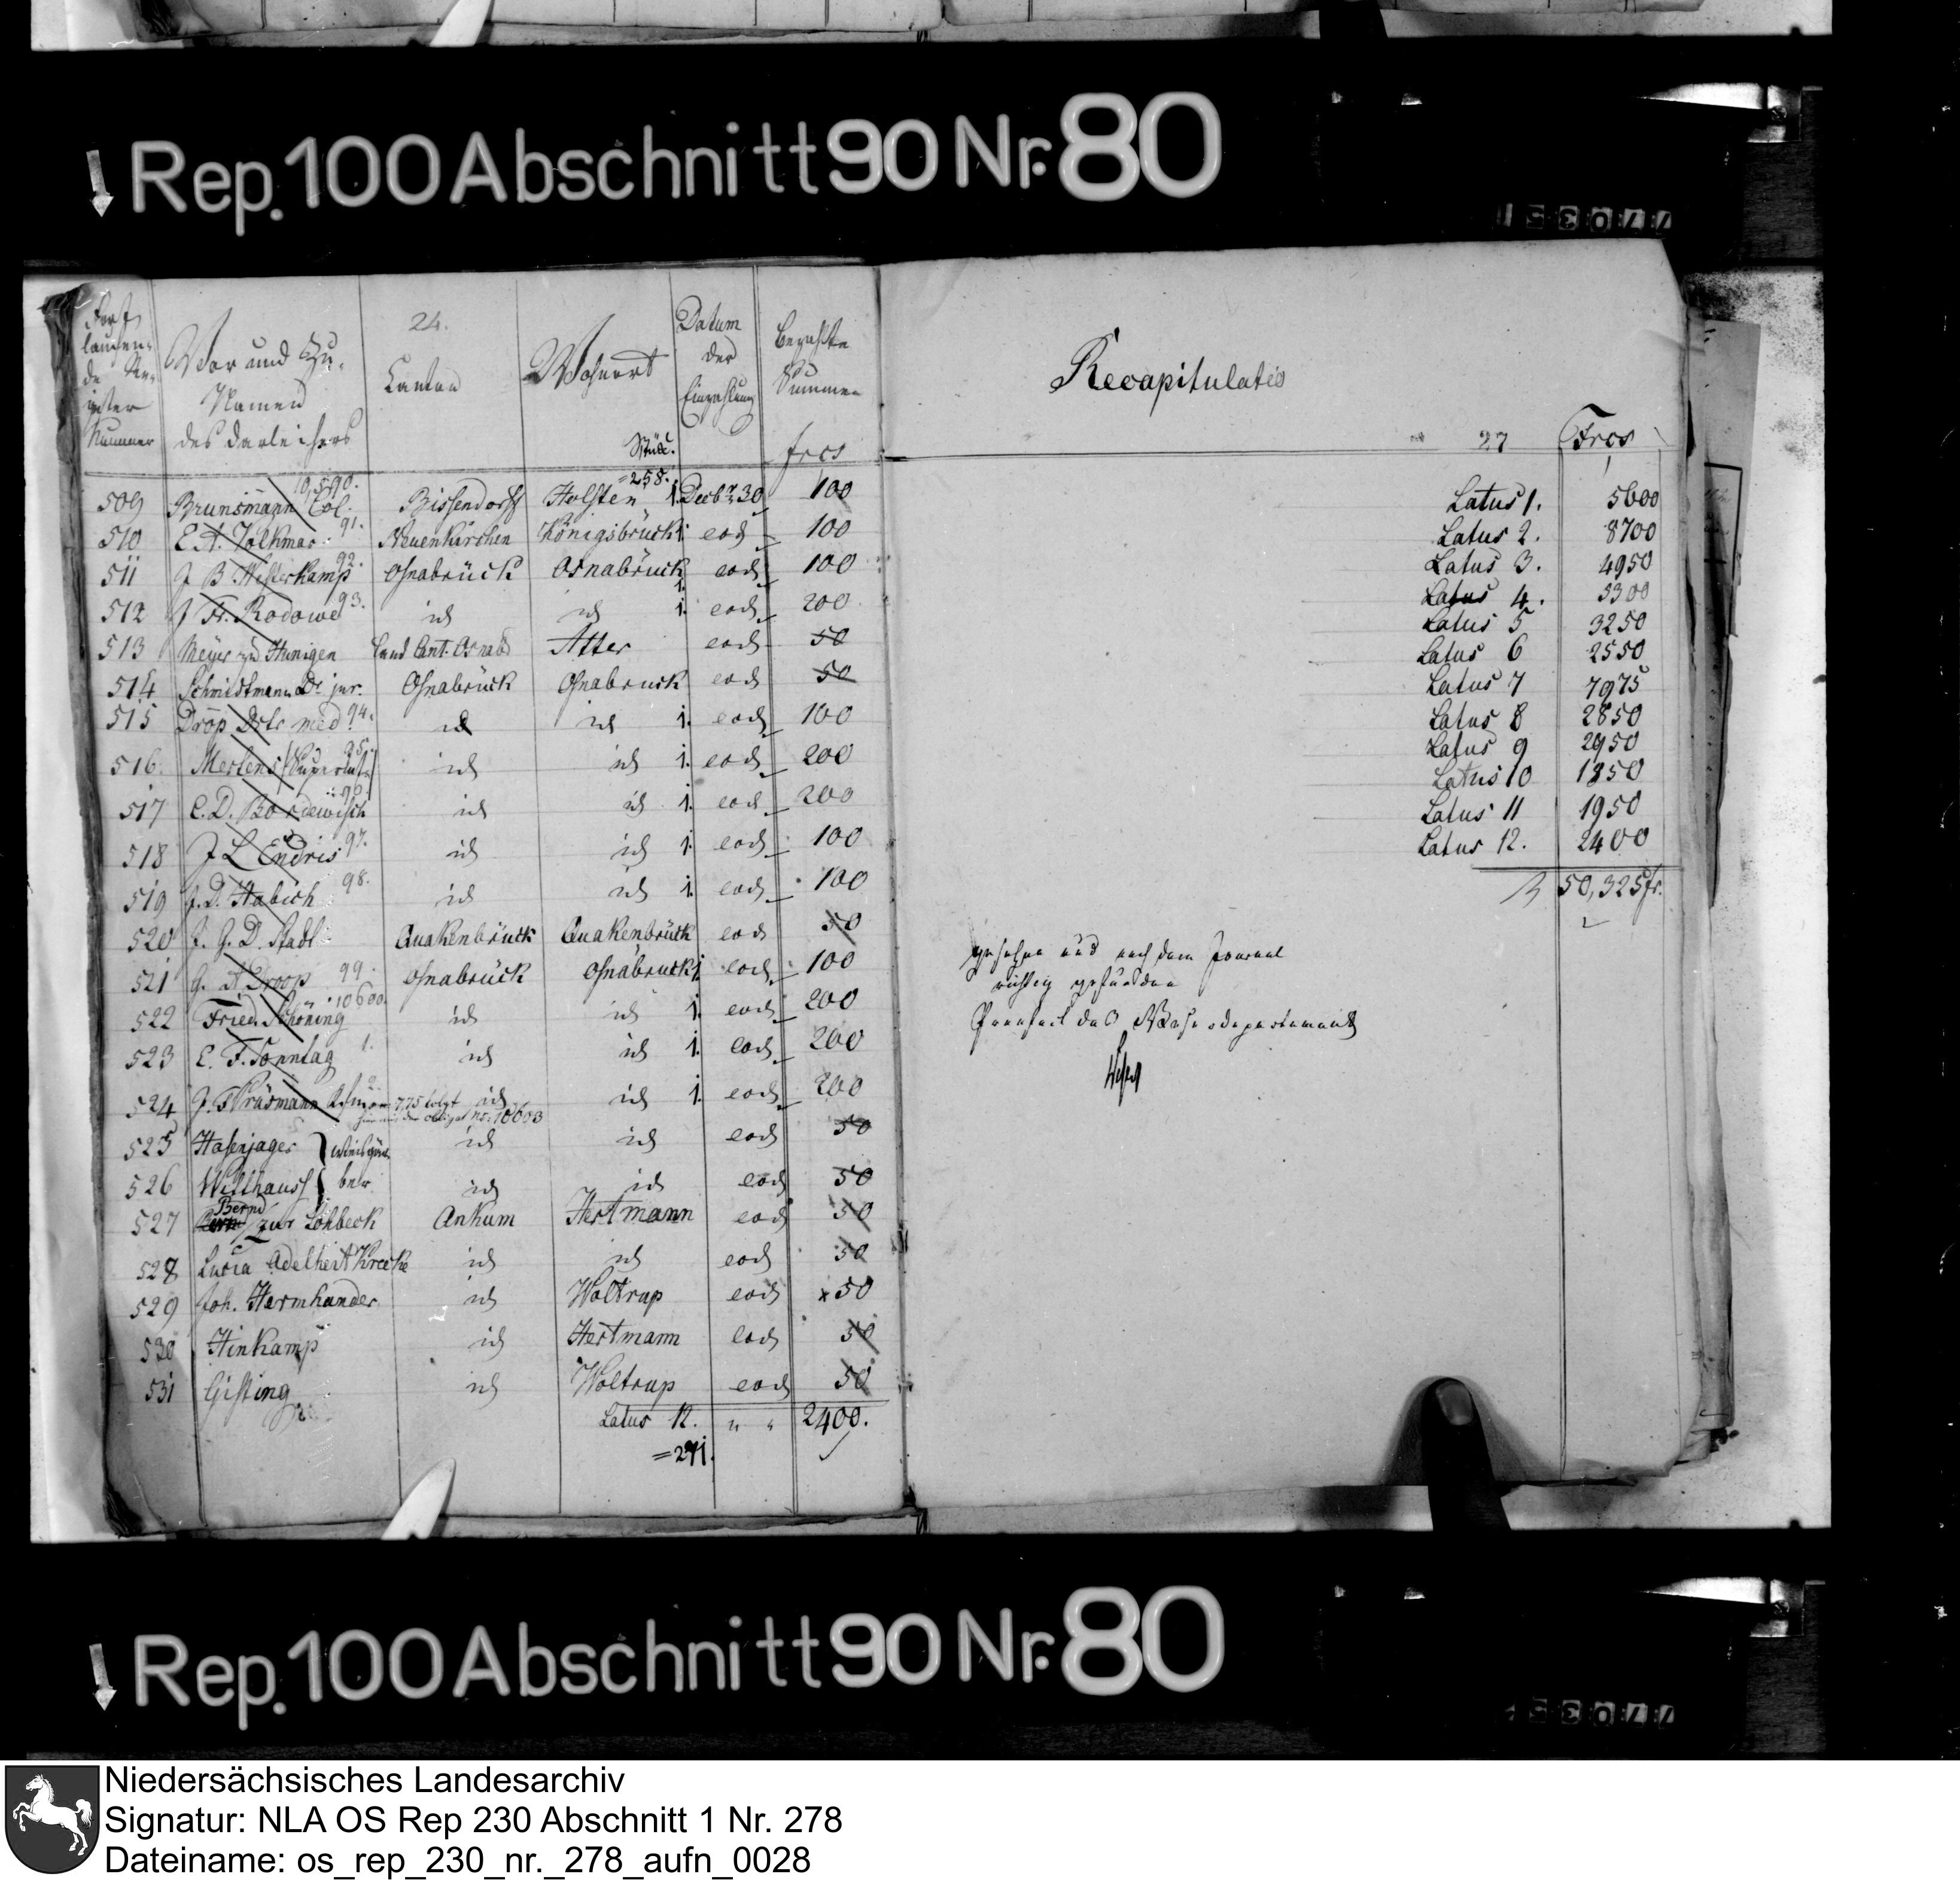 Rep. 100 Abschnitt 90 Nr. 80
77035
24.
Fort
laufen-
de Re-
gister
Nummer
Vor und Zu-
Namen
des Darleihers
Canton
Wohnort
Datum
der
Einzahlung
Bezahlte
Summen
Stück.
frcs
=258.
509 Brunsmann Col. 10,590. Bissendorff Holsten 1. Decbr 30 100
510 E. A. Volkmar 91. Neuenkirchen Königsbrück 1. eod 100
511 J B Westerkamp 92. Osnabrück Osnabrück 1. eod 100
512 J Fr. Rodowe 93. id id 1. eod 200
513 Meyer zu Hunigen Land Cant. Osnab Atter eod 50
514 Schmidtmann Dr. jur. Osnabrück Osnabruck eod 50
515 Drop Dr. med 94. id id 1. eod 100
516 Mertens 95. id id 1. eod 200
517 C. D. Bordewisch 96. id id 1. eod 200
518 J L Endris 97. id id 1. eod 100
519 J. D. Habich 98. id id 1. eod 100
520 J. G. D. Stadl Quakenbrück Quakenbrück eod 50
521 G. A Droop 99. Osnabrück Osnabruck 1. eod 100
522 Fried. Schöning 10600. id id 1. eod 200
523 E. F. Sonntag 1. id id 1. eod 200
524 J. F Prüsmann 2. id id 1. eod 200
775 folgt
obligat No. 10603
525 Hasenjager id id eod 50
526 Witthaus id id eod 50
527 Bernd zur Lohbeck Ankum Hertmann eod 50
528 Lucia Adelheit Kreeke id id eod 50
529 Joh. Hermhander id Woltrup eod x 50
530 Hinkamp id Hertmann eod 50
531 Gisting id Woltrup eod 50
Latus 12. " " 2400.
=271.
Recapitulatio
27 Frcs
Latus 1. 5600
Latus 2. 8700
Latus 3. 4950
Latus 4. 5300
Latus 5 3250
Latus 6 2550
Latus 7 7975
Latus 8 2850
Latus 9 2950
Latus 10 1850
Latus 11 1950
Latus 12. 2400
50,325 fr.
gesehen und nach dem Journal
richtig gefunden
Praefect des Weserdepartements
Rep. 100 Abschnitt 90 Nr. 80
77035
Niedersächsisches Landesarchiv
Signatur: NLA OS Rep 230 Abschnitt 1 Nr. 278
Dateiname: os_rep_230_nr._278_aufn_0028